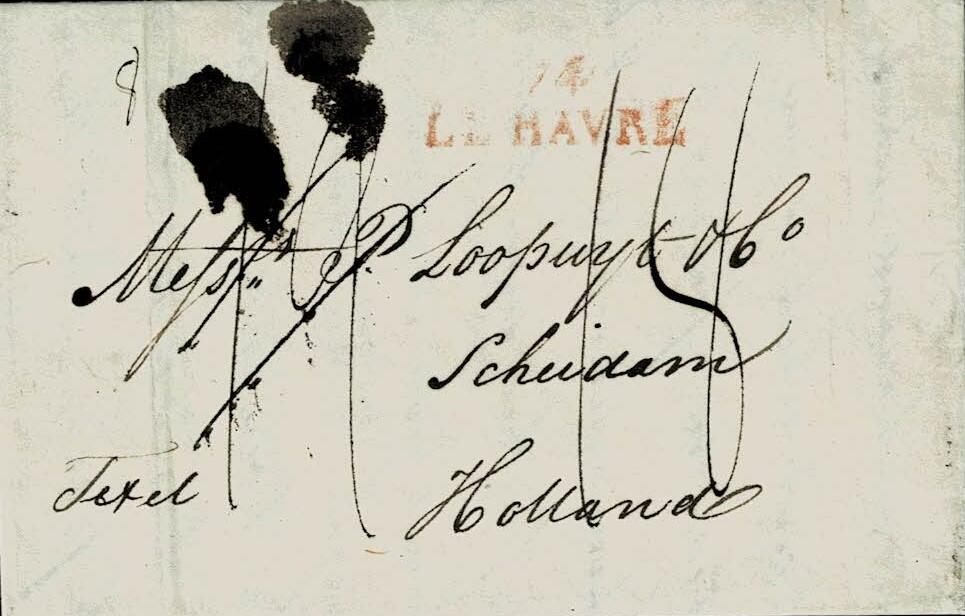 8
74
LE HAVRE
Messrs P. Loopuyt & Co
Scheidam
Texel
Holland